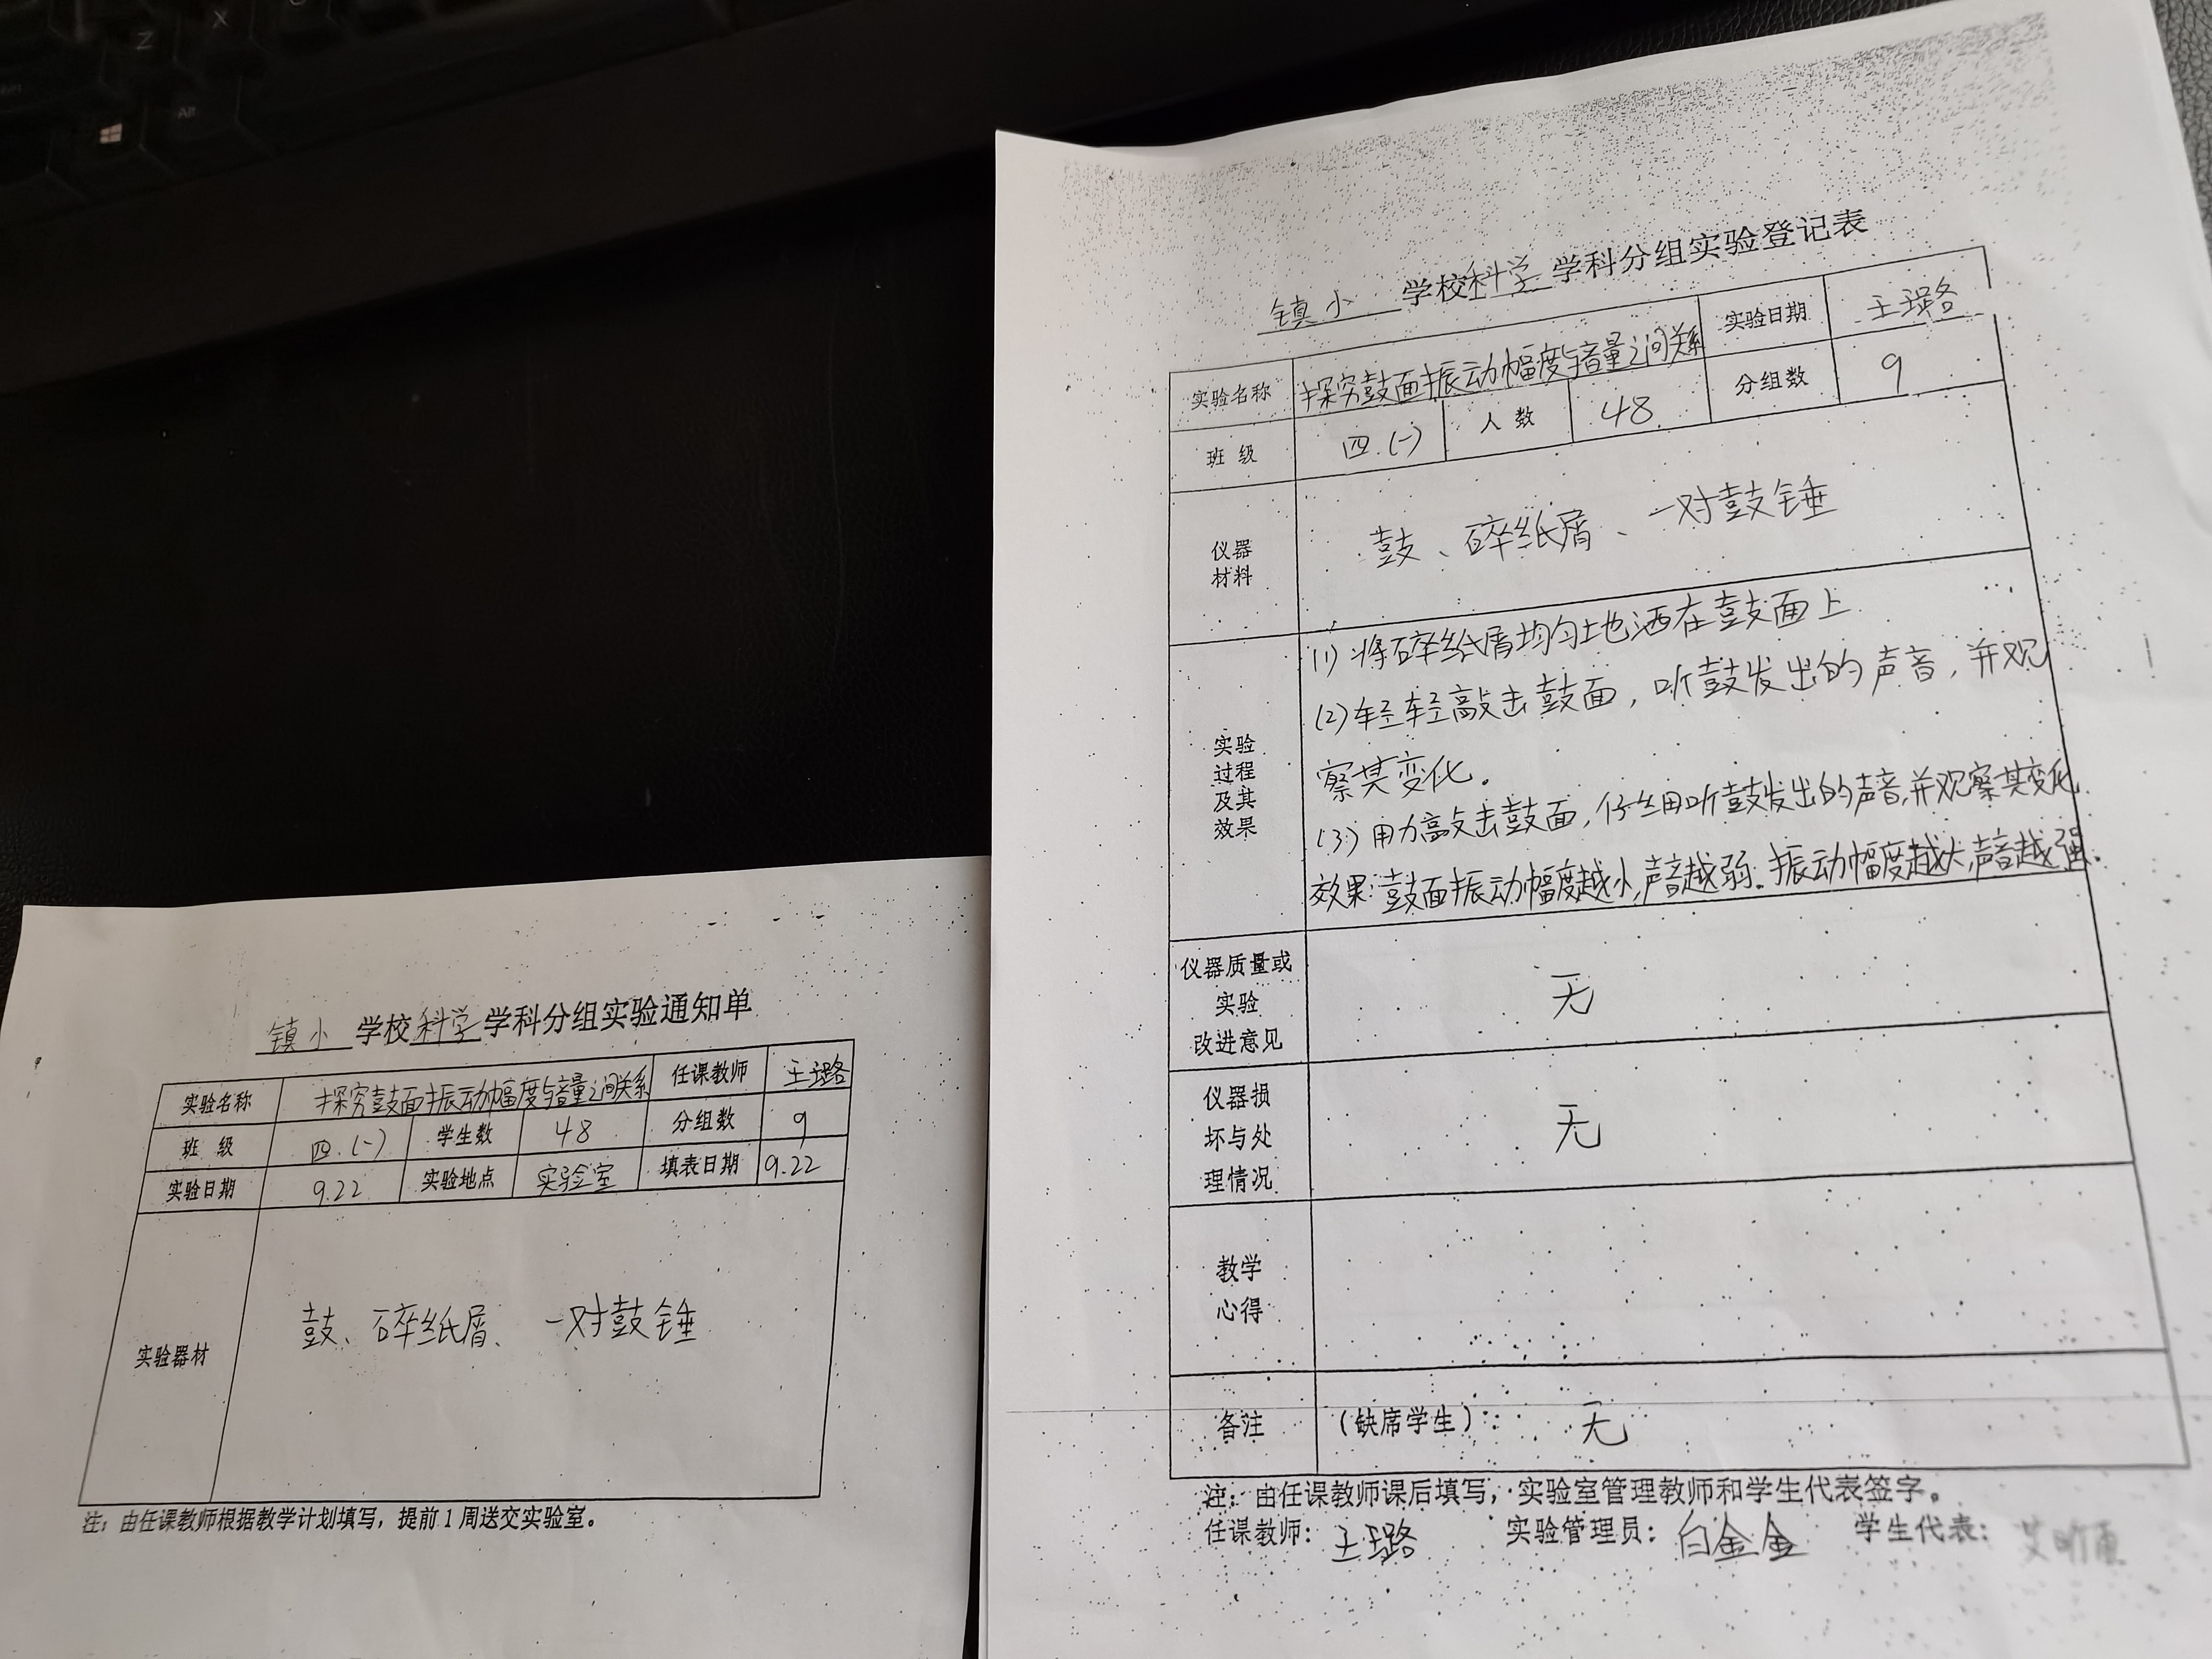 Z
X
Alt
镇小 学校科学学科分组实验通知单
实验名称 探究鼓面振动幅度与音量之间关系 任课教师 王璐
班 级 四.(一) 学生数 48 分组数 9
实验日期 9.22 实验地点 实验室 填表日期 9.22
实验器材 鼓、碎纸屑、一对鼓锤
注：由任课教师根据教学计划填写，提前1周送交实验室。
镇小 学校科学学科分组实验登记表
实验名称 探究鼓面振动幅度与音量之间关系 实验日期 王璐
班 级 四.(一) 人 数 48 分组数 9
仪器
材料
鼓、碎纸屑、一对鼓锤
实验
过程
及其
效果
(1) 将碎纸屑均匀地洒在鼓面上
(2) 轻轻敲击鼓面，听鼓发出的声音，并观
察其变化。
(3) 用力敲击鼓面，仔细听鼓发出的声音,并观察其变化.
效果: 鼓面振动幅度越小,声音越弱. 振动幅度越大,声音越强.
仪器质量或
实验
改进意见
无
仪器损
坏与处
理情况
无
教学
心得
备注 （缺席学生）： 无
注：由任课教师课后填写，实验室管理教师和学生代表签字。
任课教师：王璐 实验管理员：白金金 学生代表：